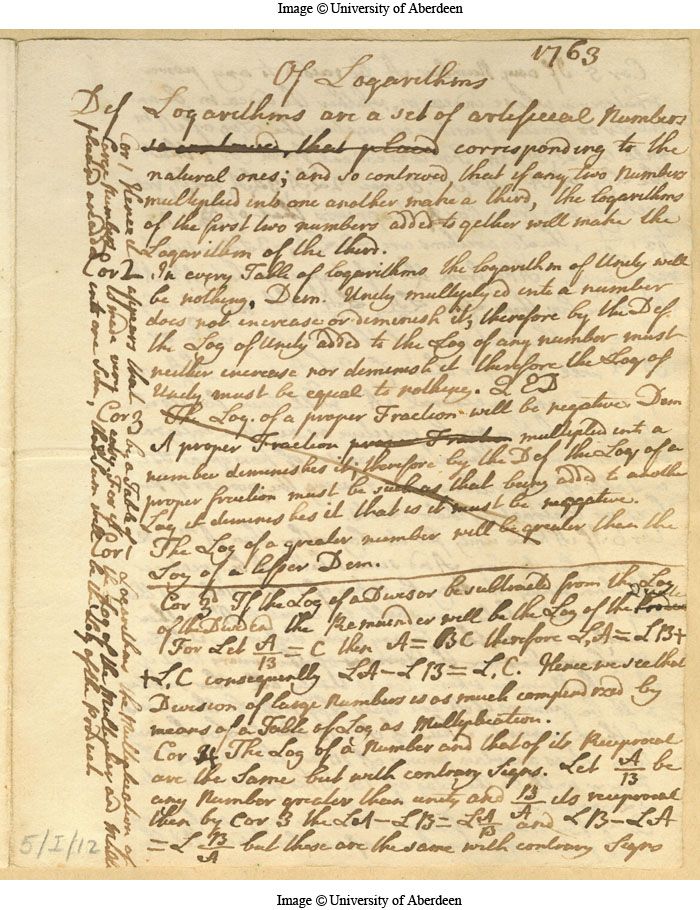 Image © University of Aberdeen
1763
Of Logarithms
Def Logarithms are a set of artificial Numbers
so contrived, that placed corresponding to the
natural ones; and so contrived, that if any two Numbers
multiplied into one another make a third, the logarithms
of the first two numbers added together will make the
Logarithm of the third.
Cor 2 In every Table of logarithms the logarithm of Unity will
be nothing. Dem. Unity multiplyed into a number
does not increase or diminish it; therefore by the Def.
the Log of Unity added to the Log of any number must
neither increase nor diminish it therefore the Log of
Unity must be equal to nothing. Q E D
Cor 3 The Log. of a proper Fraction will be negative Dem
A proper Fraction multiplied into a
number diminishes it therefore by the Def the Log of a
proper fraction must be such as that being added to another
Log it diminishes it that is it must be negative.
Cor The Log of a greater number will be greater than the
Log of a lesser Dem.
Cor 3d If the Log of a Divisor be subtracted from the Log
of the Dividend the Remainder will be the Log of the
For Let A/B = C then A = BC therefore L,A = LB +
+ L,C consequently LA - LB = L,C. Hence we see that
Division of large Numbers is as much compendized by
means of a Table of Log as Multiplication.
Cor 4 The Log of a Number and that of its Reciprocal
are the Same but with contrary Signs. Let A/B be
any Number greater than unity and B/A its reciprocal
then by Cor 3 the LA - LB = L A/B and LB - LA
= L B/A but these are the same with contrary Signs
Cor 1 Hence it appears that by a Table of Logarithms the Multiplication of
large Numbers is made very easy. For if the Log of the Multiplier and
placed are added into one Sum, this Sum will be the Log of the Product
5/I/12
Image © University of Aberdeen